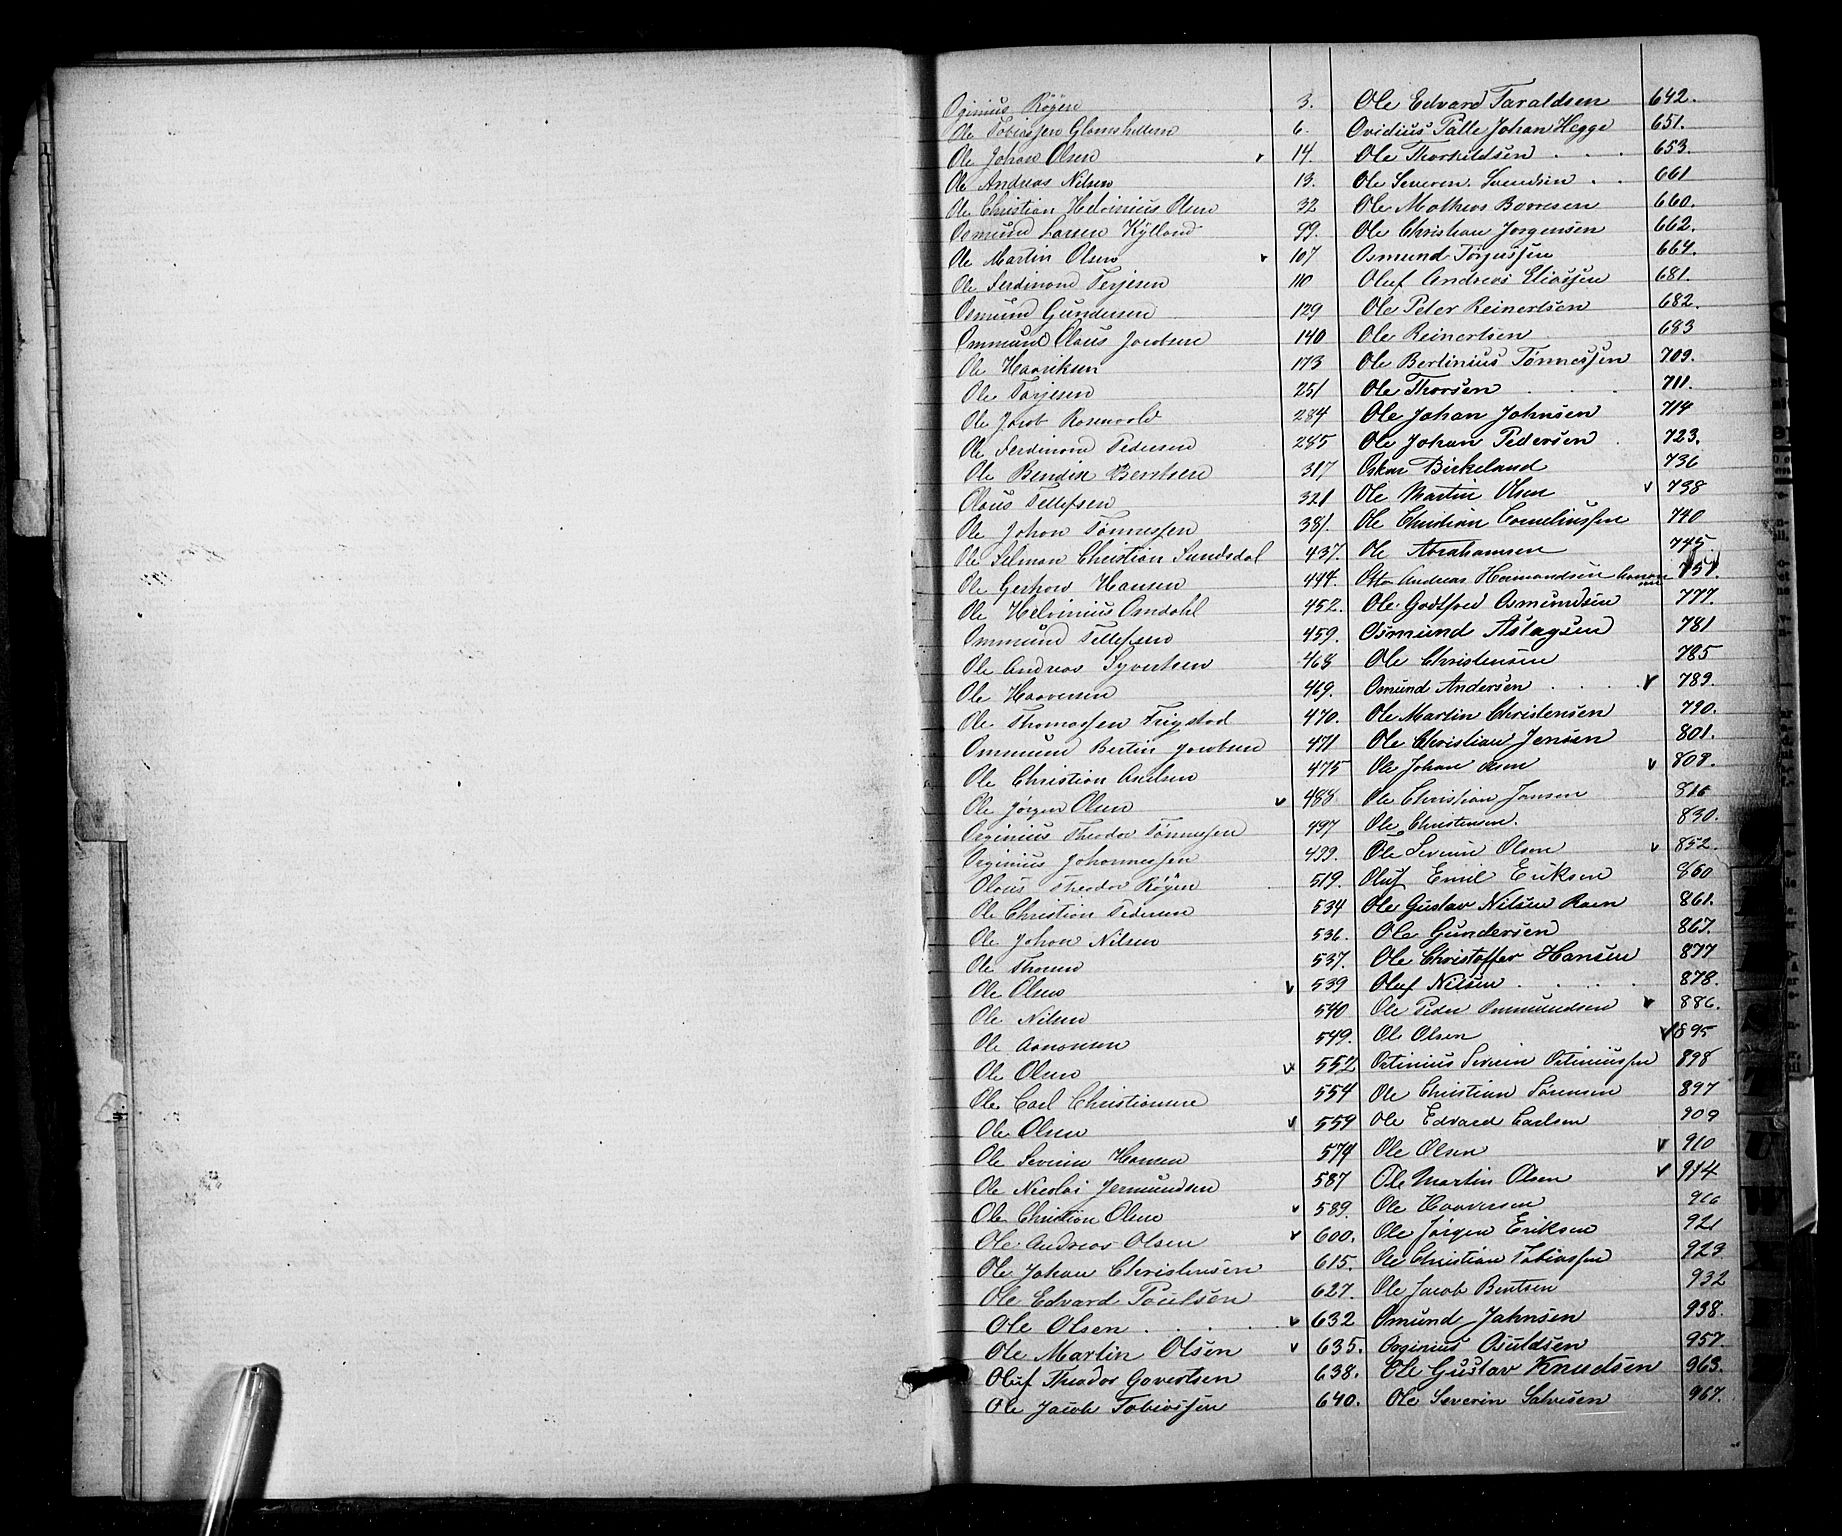 Oginius Røgen 3.
Ole Tobiassen Glomshilden 6.
Ole Johan Olsen v 14.
Ole Andreas Nilsen 13.
Ole Christian Helvinius Olsen 32
Osmund Larsen Kylland 99.
Ole Martin Olsen v 107
Ole Ferdinand Terjesen 110
Osmund Gundersen 129
Ommund Olaus Jacobsen 140
Ole Haariksen 173
Ole Torjesen 251
Ole Jacob Rosenvold 284
Ole Ferdinand Pedersen 285
Ole Bendix Berntsen 317
Olaus Tellefsen 321
Ole Johan Tønnessen 381.
Ole Salman Christian Sundsdal 437.
Ole Hansen 444.
Ole Helvinius Omdahl 452.
Ommund Tellefsen 459.
Ole Andreas Syvertsen 468
Ole Haaversen 469.
Ole Thomassen Frigstad 470.
Ommund Bertin Jacobsen 471
Ole Christian Axelsen 475
Ole Jørgen Olsen v 488
Orginius Theodor Tønnessen 497
Orginius Johannessen 499.
Olaus Theodor Røgen 519.
Ole Christian Pedersen 534
Ole Johan Nilsen 536.
Ole Thorsen 537.
Ole Olsen v 539
Ole Nilsen 540
Ole Aanonsen 549.
Ole Olsen v 552
Ole Carl Christiansen 554
Ole Olsen v 559
Ole Severin Hansen 574
Ole Nicolai Jermundsen 587
Ole Christian Olsen v 589.
Ole Andreas Olsen v 600.
Ole Johan Christensen 615.
Ole Edvard Poulsen 627.
Ole Olsen v 632
Ole Martin Olsen v 635.
Oluf Theodor Govertsen 638.
Ole Jacob Tobiassen 640.
Ole Edvard Taraldsen 642.
Ovidius Palle Johan Hegge 651.
Ole Thorkildsen 653.
Ole Severin Svendsen 661
Ole Mathias Børresen 660.
Ole Christian Jørgensen 662.
Osmund Torjussen 664.
Oluf Andreas Eliassen 681.
Ole Peter Reinertsen 682.
Ole Reinertsen 683
Ole Bertinius Tønnessen 709.
Ole Thorsen 711.
Ole Johan Johnsen 714
Ole Johan Pedersen 723.
Oskar Birkeland 736
Ole Martin Olsen v 738
Ole Christian Corneliussen 740
Ole Abrahamsen 745
Otto Andreas Hermandsen 757.
Ole Godtfred Osmundsen 777.
Osmund Aslagsen 781
Ole Christensen 785
Osmund Andersen v 789.
Ole Martin Christensen 790.
Ole Christian Jensen 801.
Ole Johan Olsen v 808.
Ole Christian Jansen 816
Ole Christensen. 830.
Ole Severin Olsen v 852.
Oluf Emil Eriksen 860
Ole Gustav Nilsen Roen 861.
Ole Gundersen 867.
Ole Christoffer Hansen 877
Oluf Nilsen 878.
Ole Peder Ommundsen v 886.
Ole Olsen v 895
Ostinius Severin Ostiniussen 898
Ole Christian Sørensen 897
Ole Edvard Carlsen 909
Ole Olsen v 910
Ole Martin Olsen v 914
Ole Haaversen 916
Ole Jørgen Eriksen 921
Ole Christian Tobiassen 929
Ole Jacob Bentsen 932
Osmund Jahnsen 938.
Orginius Osuldsen 957.
Ole Gustav Knudsen 963.
Ole Severin Salvesen 967.
S
T
U
W